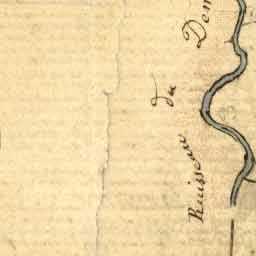 Ruisseau du Dem